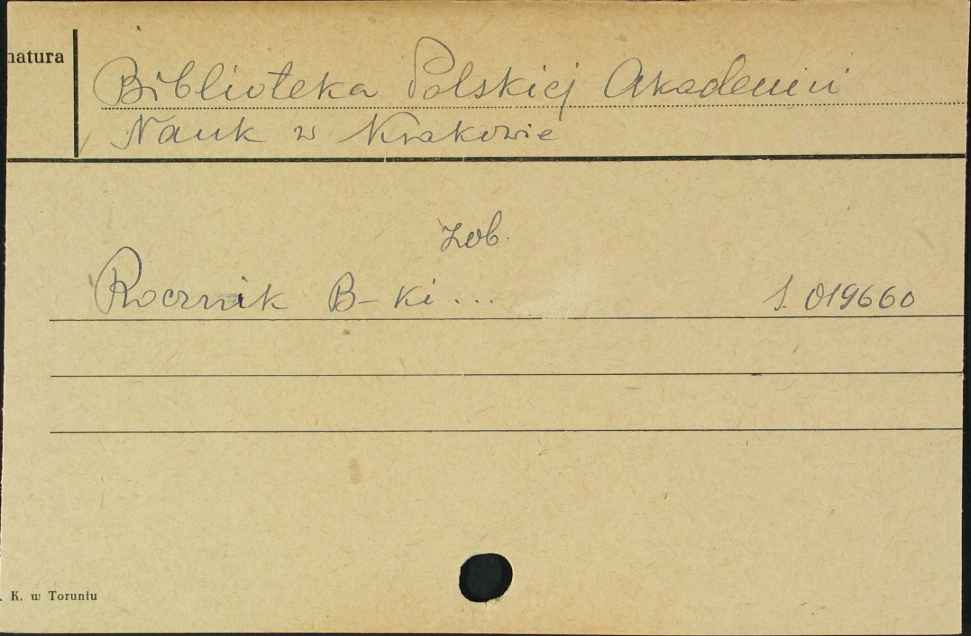 natura
Biblioteka Polskiej Akademii
Nauk w Krakowie
zob.
Rocznik B-ki... S. 019660
. K. w Toruniu